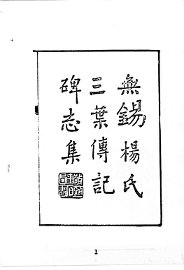 無錫楊氏
三葉傳記
碑志集
1